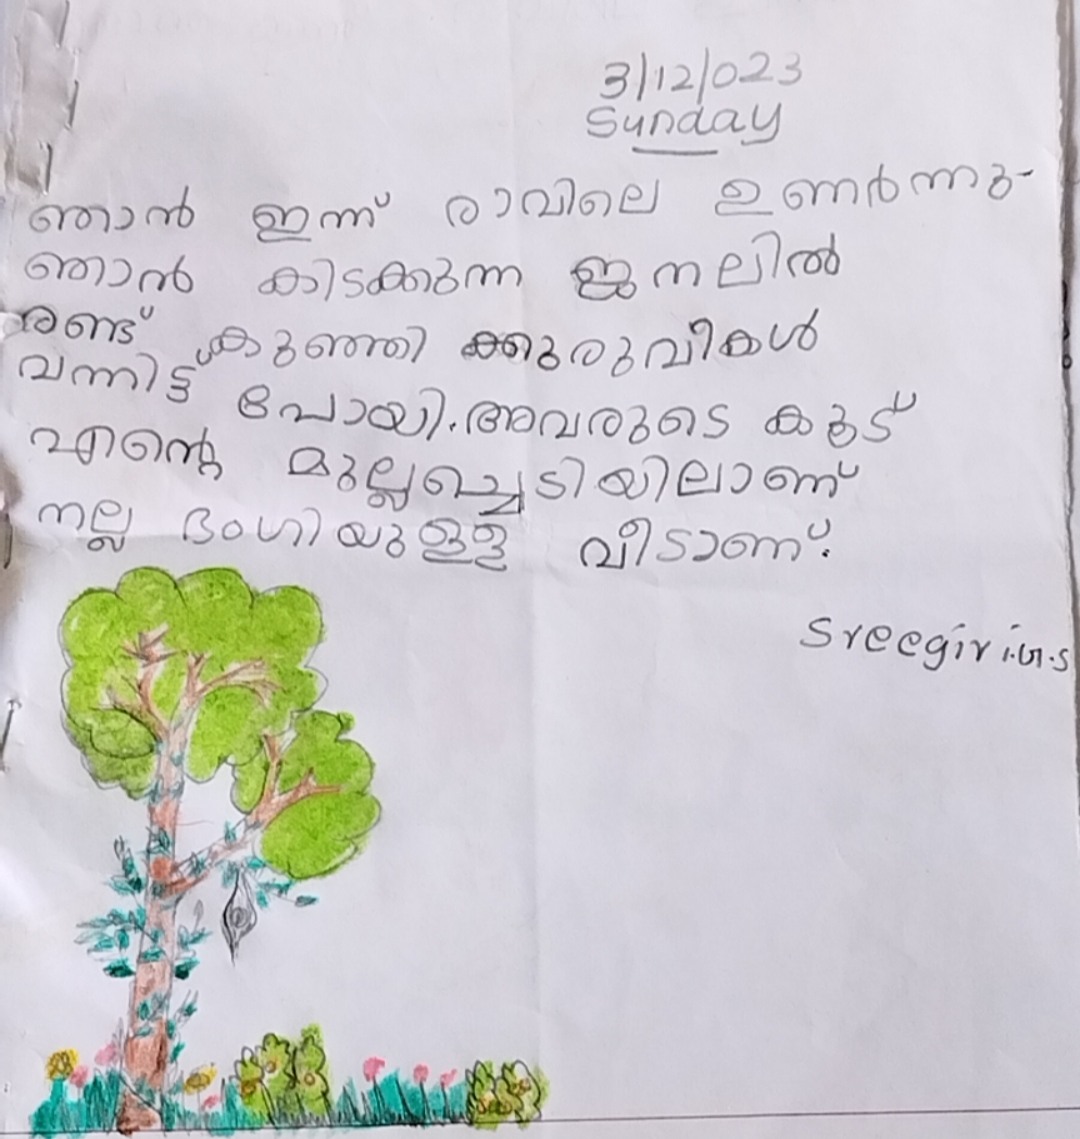 3/12/023
Sunday
ഞാൻ ഇന്ന് രാവിലെ ഉണർന്നു
ഞാൻ കിടക്കുന്ന ജനലിൽ
രണ്ട് കുഞ്ഞി ക്കുരുവീകൾ
വന്നിട്ട് പോയി. അവരുടെ കൂട്
എന്റെ മുല്ലച്ചെടിയിലാണ്
നല്ല ഭംഗിയുള്ള വീടാണ്.
Sreegiri.G.S